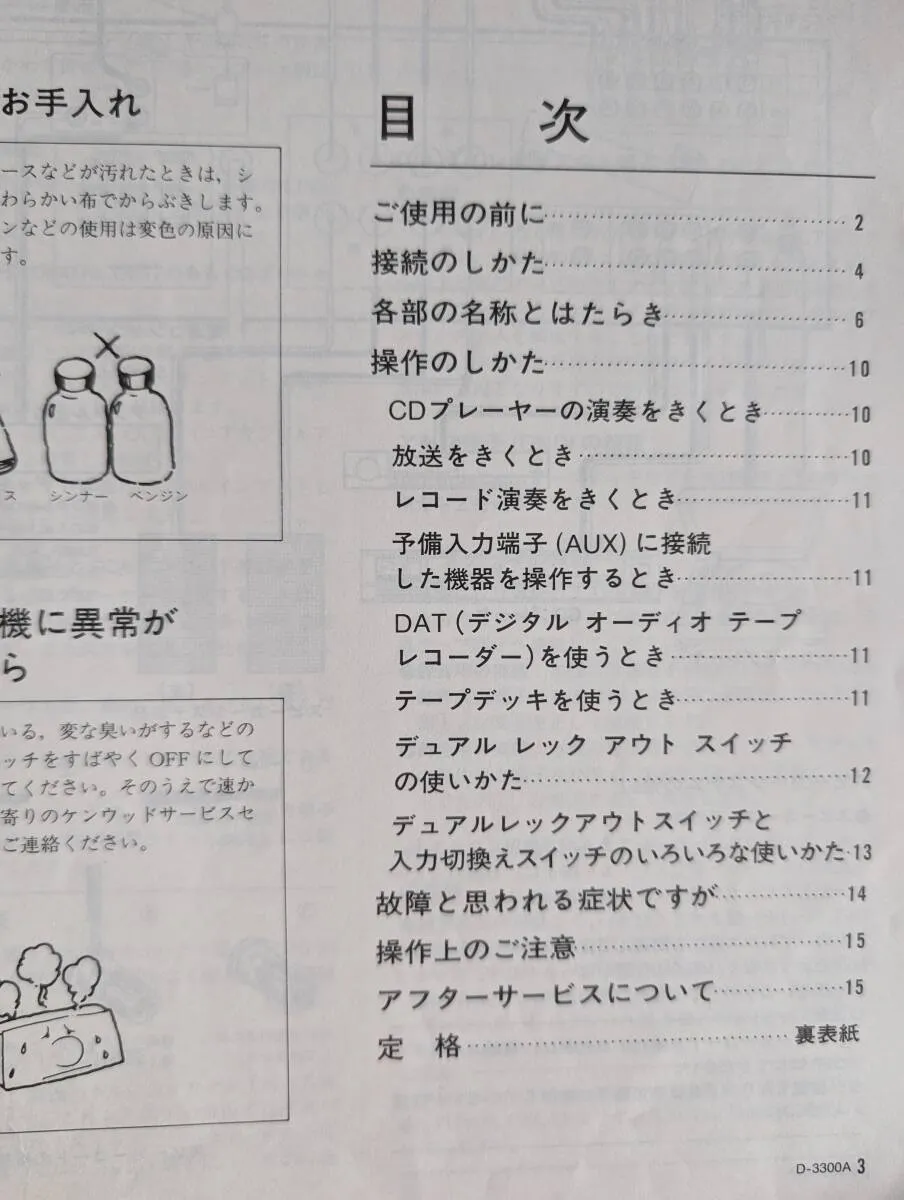 お手入れ
ースなどが汚れたときは，シ
わらかい布でからぶきします。
ンなどの使用は変色の原因に
す。
ス シンナー ベンジン
機に異常が
ら
いる，変な臭いがするなどの
ッチをすばやくOFFにして
てください。そのうえで速か
寄りのケンウッドサービスセ
ご連絡ください。
目 次
ご使用の前に 2
接続のしかた 4
各部の名称とはたらき 6
操作のしかた 10
CDプレーヤーの演奏をきくとき 10
放送をきくとき 10
レコード演奏をきくとき 11
予備入力端子(AUX)に接続
した機器を操作するとき 11
DAT(デジタル オーディオ テープ
レコーダー)を使うとき 11
テープデッキを使うとき 11
デュアル レック アウト スイッチ
の使いかた 12
デュアルレックアウトスイッチと
入力切換えスイッチのいろいろな使いかた 13
故障と思われる症状ですが 14
操作上のご注意 15
アフターサービスについて 15
定 格 裏表紙
D-3300A 3